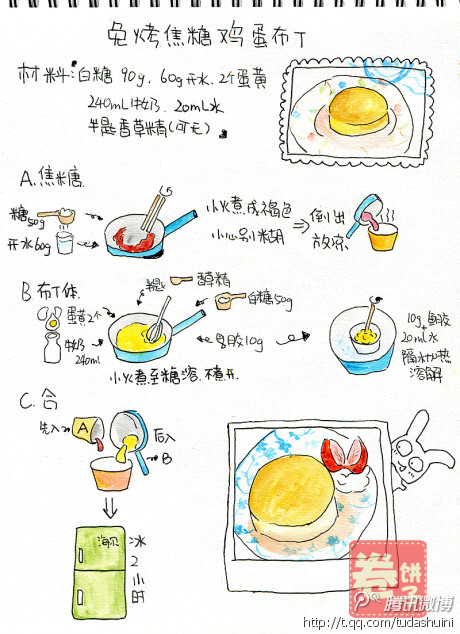 免烤焦糖鸡蛋布丁
材料:白糖90g、60g开水、2个蛋黄
240mL牛奶、20mL水
半匙香草精(可无)。
A.焦糖.
糖50g
开水60g
小火煮成褐色
小心别糊
倒出放凉
B布丁体.
蛋黄2个
牛奶240ml
半匙
香草精
白糖50g
鱼胶10g
10g鱼胶
+
20mL水
隔水加热
溶解
小火煮至糖溶.不煮开.
C.合
先入
A
后入
B
海尔
冰2小时
卷饼子
腾讯微博
http://t.qq.com/tudashuini